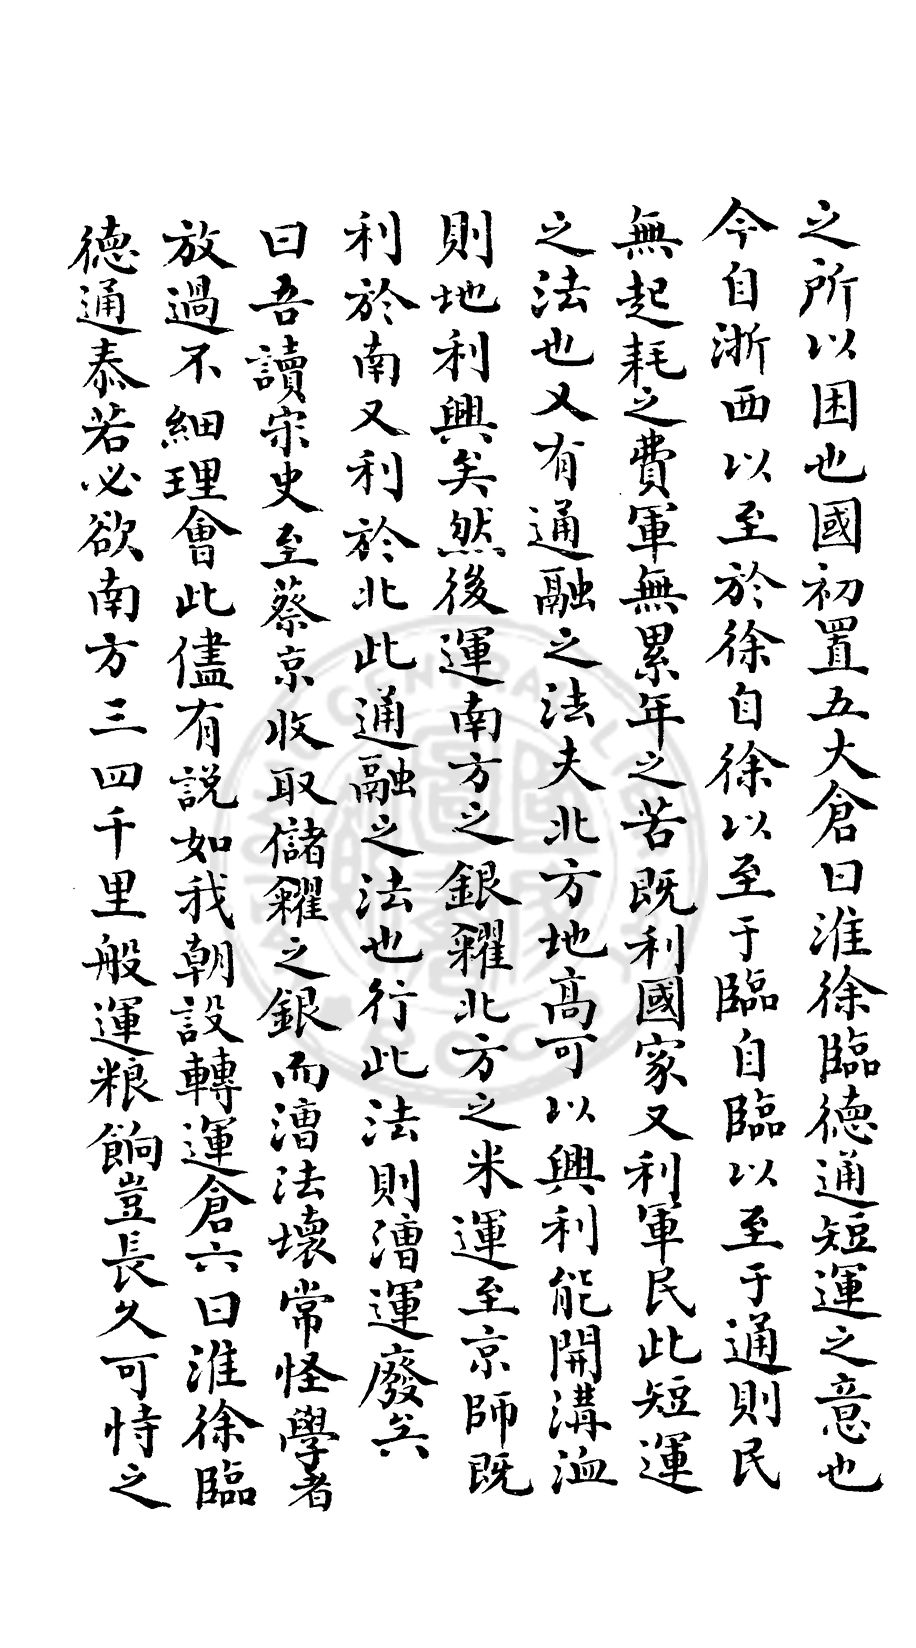 之所以困也國初置五大倉曰淮徐臨德通短運之意也
今自浙西以至於徐自徐以至于臨自臨以至于通則民
無起耗之費軍無累年之苦既利國家又利軍民此短運
之法也又有通融之法夫北方地高可以興利能開溝洫
則地利興矣然後運南方之銀糴北方之米運至京師既
利於南又利於北此通融之法也行此法則漕運廢矣
曰吾讀宋史至蔡京收取儲糴之銀而漕法壞常怪學者
放過不細理會此儘有説如我朝設轉運倉六曰淮徐臨
德通泰若必欲南方三四千里般運粮餉豈長久可恃之
CENTRAL LI